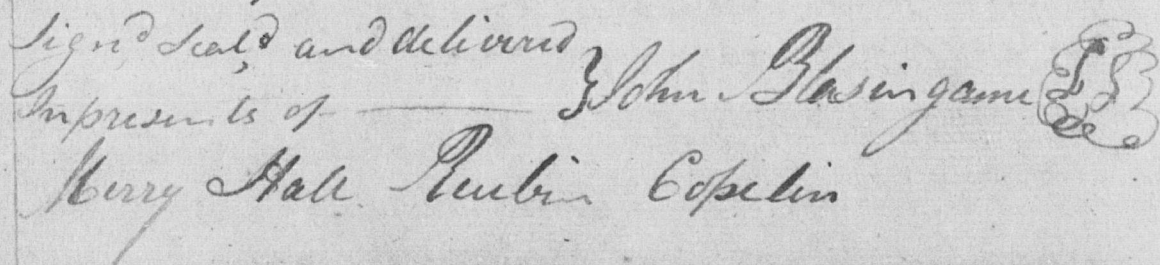 Sign'd Seal'd and delivered
In presents of — } John Blasingame LS
Merry Hall Reubin Copelin